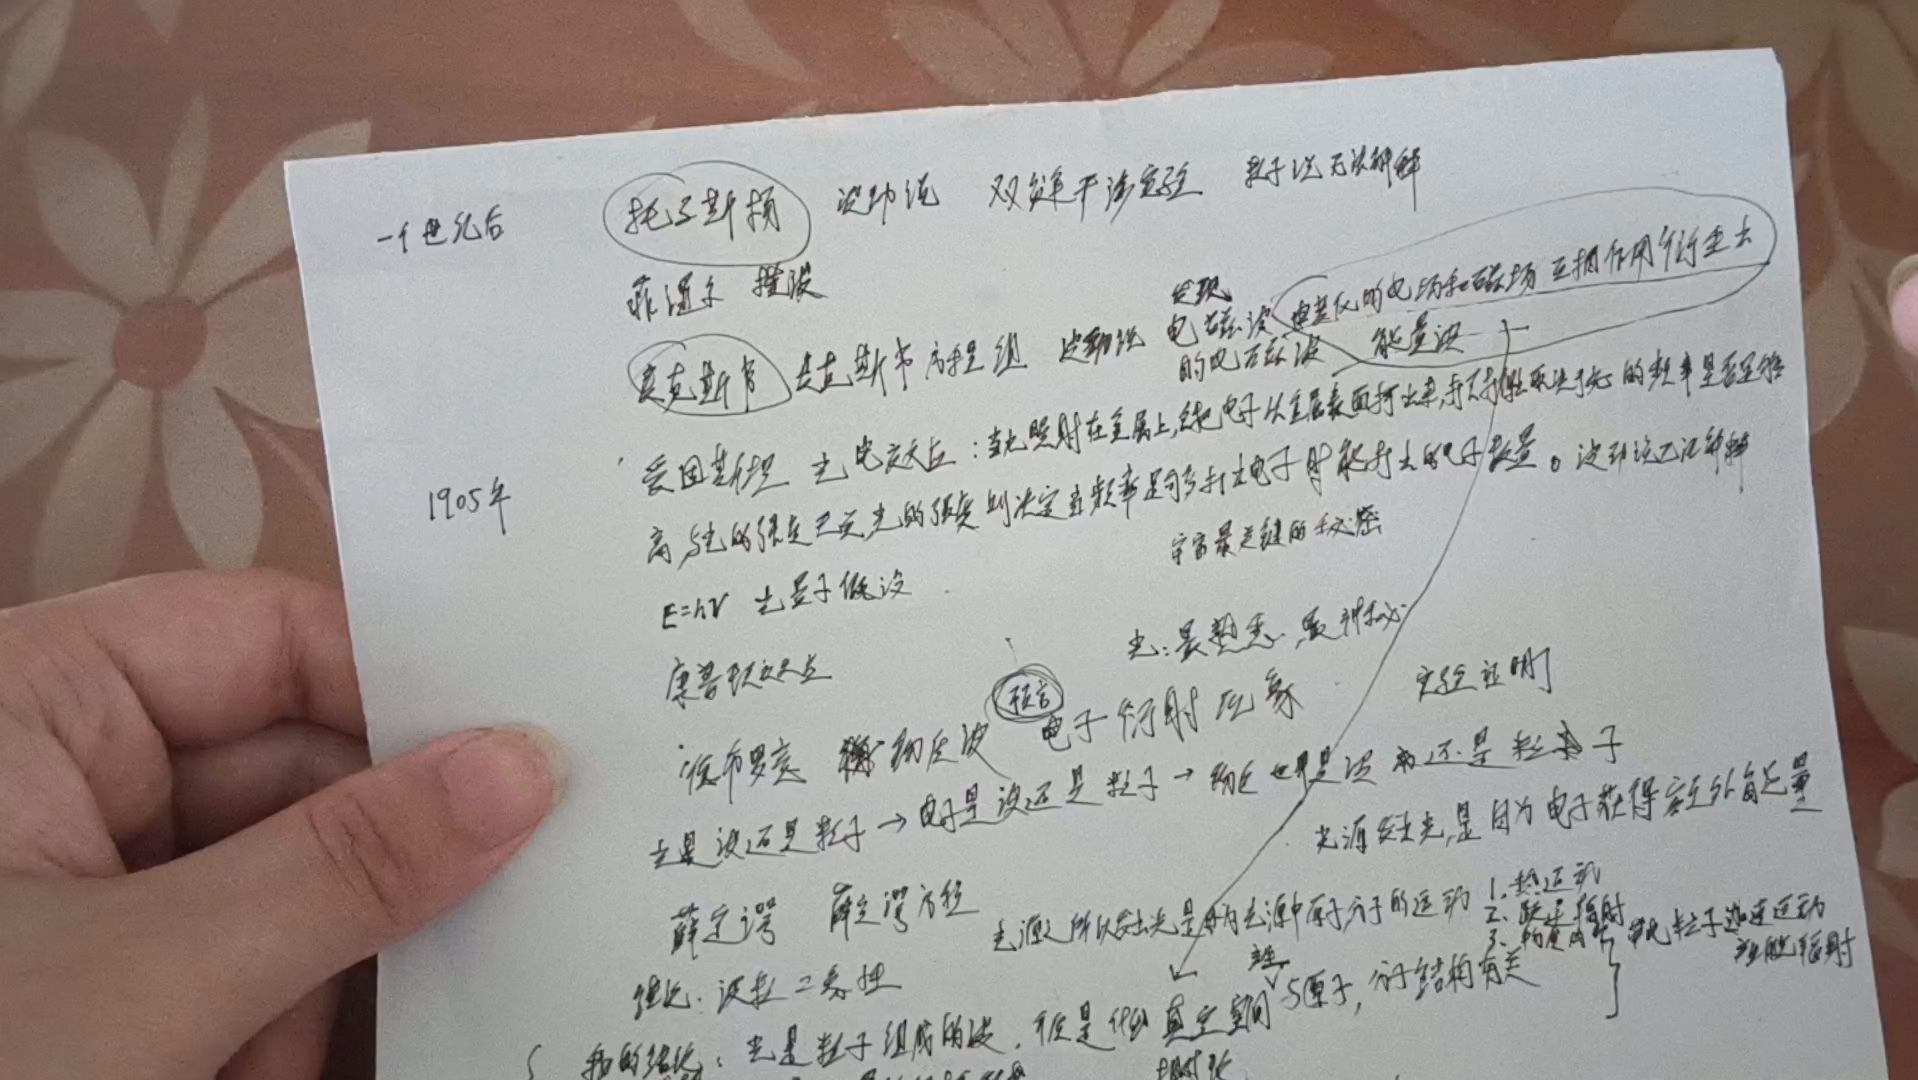 一个世纪后 托马斯杨 波动说 双缝干涉实验 粒子说无法解释
菲涅尔 横波
发现
麦克斯韦 麦克斯韦方程组 波动说 电磁波 由变化的电场和磁场互相作用衍生出
的电磁波 能量波
1905年 爱因斯坦 光电效应:当光照射在金属上,会把电子从金属表面打出来,打不打得出取决于光的频率是否足够
高,与光的强度无关,光的强度则决定当频率足够打出电子时能打出的电子数量。波动说无法解释
宇宙最关键的秘密
E=hν 光量子假设
光:最熟悉,最神秘
康普顿效应
预言
德布罗意 物质波 电子衍射现象 实验证明
光是波还是粒子→电子是波还是粒子→物质是波还是粒子
光源发出光,是因为电子获得额外能量
薛定谔 薛定谔方程 光源之所以发出光是因为光源中原子分子的运动 1.热运动
2.跃迁辐射
带电粒子加速运动
产生 产生能辐射
结论:波粒二象性 与原子,分子结构有关
我的结论:光是粒子组成的波. 真空空间